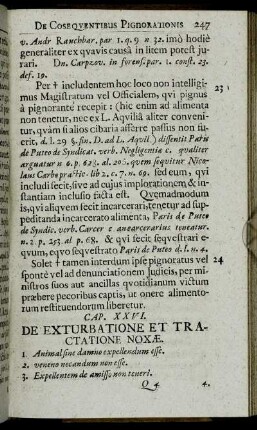 DE COSEQVENTIBUS PIGNORATIONIS 247
v. Andr Rauchbar. par 1. q. 9 n. 32. imò hodiè
generaliter ex qvavis causà in litem potest ju-
rari. Dn. Carpzov. in forens. par. 1. const. 23.
def. 19.
Per † includentem hoc loco non intelligi- 23
mus Magistratum vel Officialem, qvi pignus
à pignorante recepit: (hic enim ad alimenta
non tenetur, nec ex L. Aqviliâ aliter conveni-
tur, qvàm si alios cibaria afferre passus non fu-
erit, d. l. 29 §. fin. D. ad L. Aquil.) dissentit Paris
de Puteo de Syndicat. verb. Negligentia c. qualiter
arguatur n 6. p. 623. al. 20. quem sequitur Nico-
laus lib 2. c. 7. n. 69. sed eum, qvi
includi fecit, sive ad cujus implorationem & in-
stantiam inclusio facta est. Qvemadmodum
is, qvi aliqvem fecit incarcerari, tenetur ad sup-
peditanda incarcerato alimenta, Paris de Puteo
de Syndic. verb. Carcer & ancarcerarius teneatur.
n. 2 p. 253. al p. 68. & qvi fecit seqvestrari e-
qvum, eqvo seqvestrato Paris de Puteo d. l. n. 4.
Solet † tamen interdum ipse pignoratus vel 24
spontè vel ad denunciationem Judicis, per mi-
nistros suos aut ancillas qvotidianum victum
præbere pecoribus captis, ut onere alimento-
rum restituendorum liberetur.
CAP. XXVI.
DE EXTURBATIONE ET TRA-
CTATIONE NOXÆ.
1. Animal sine damno expellendum esse.
2. veneno necandum non esse.
3. Expellentem de amisso non teneri.
Q 4 4.